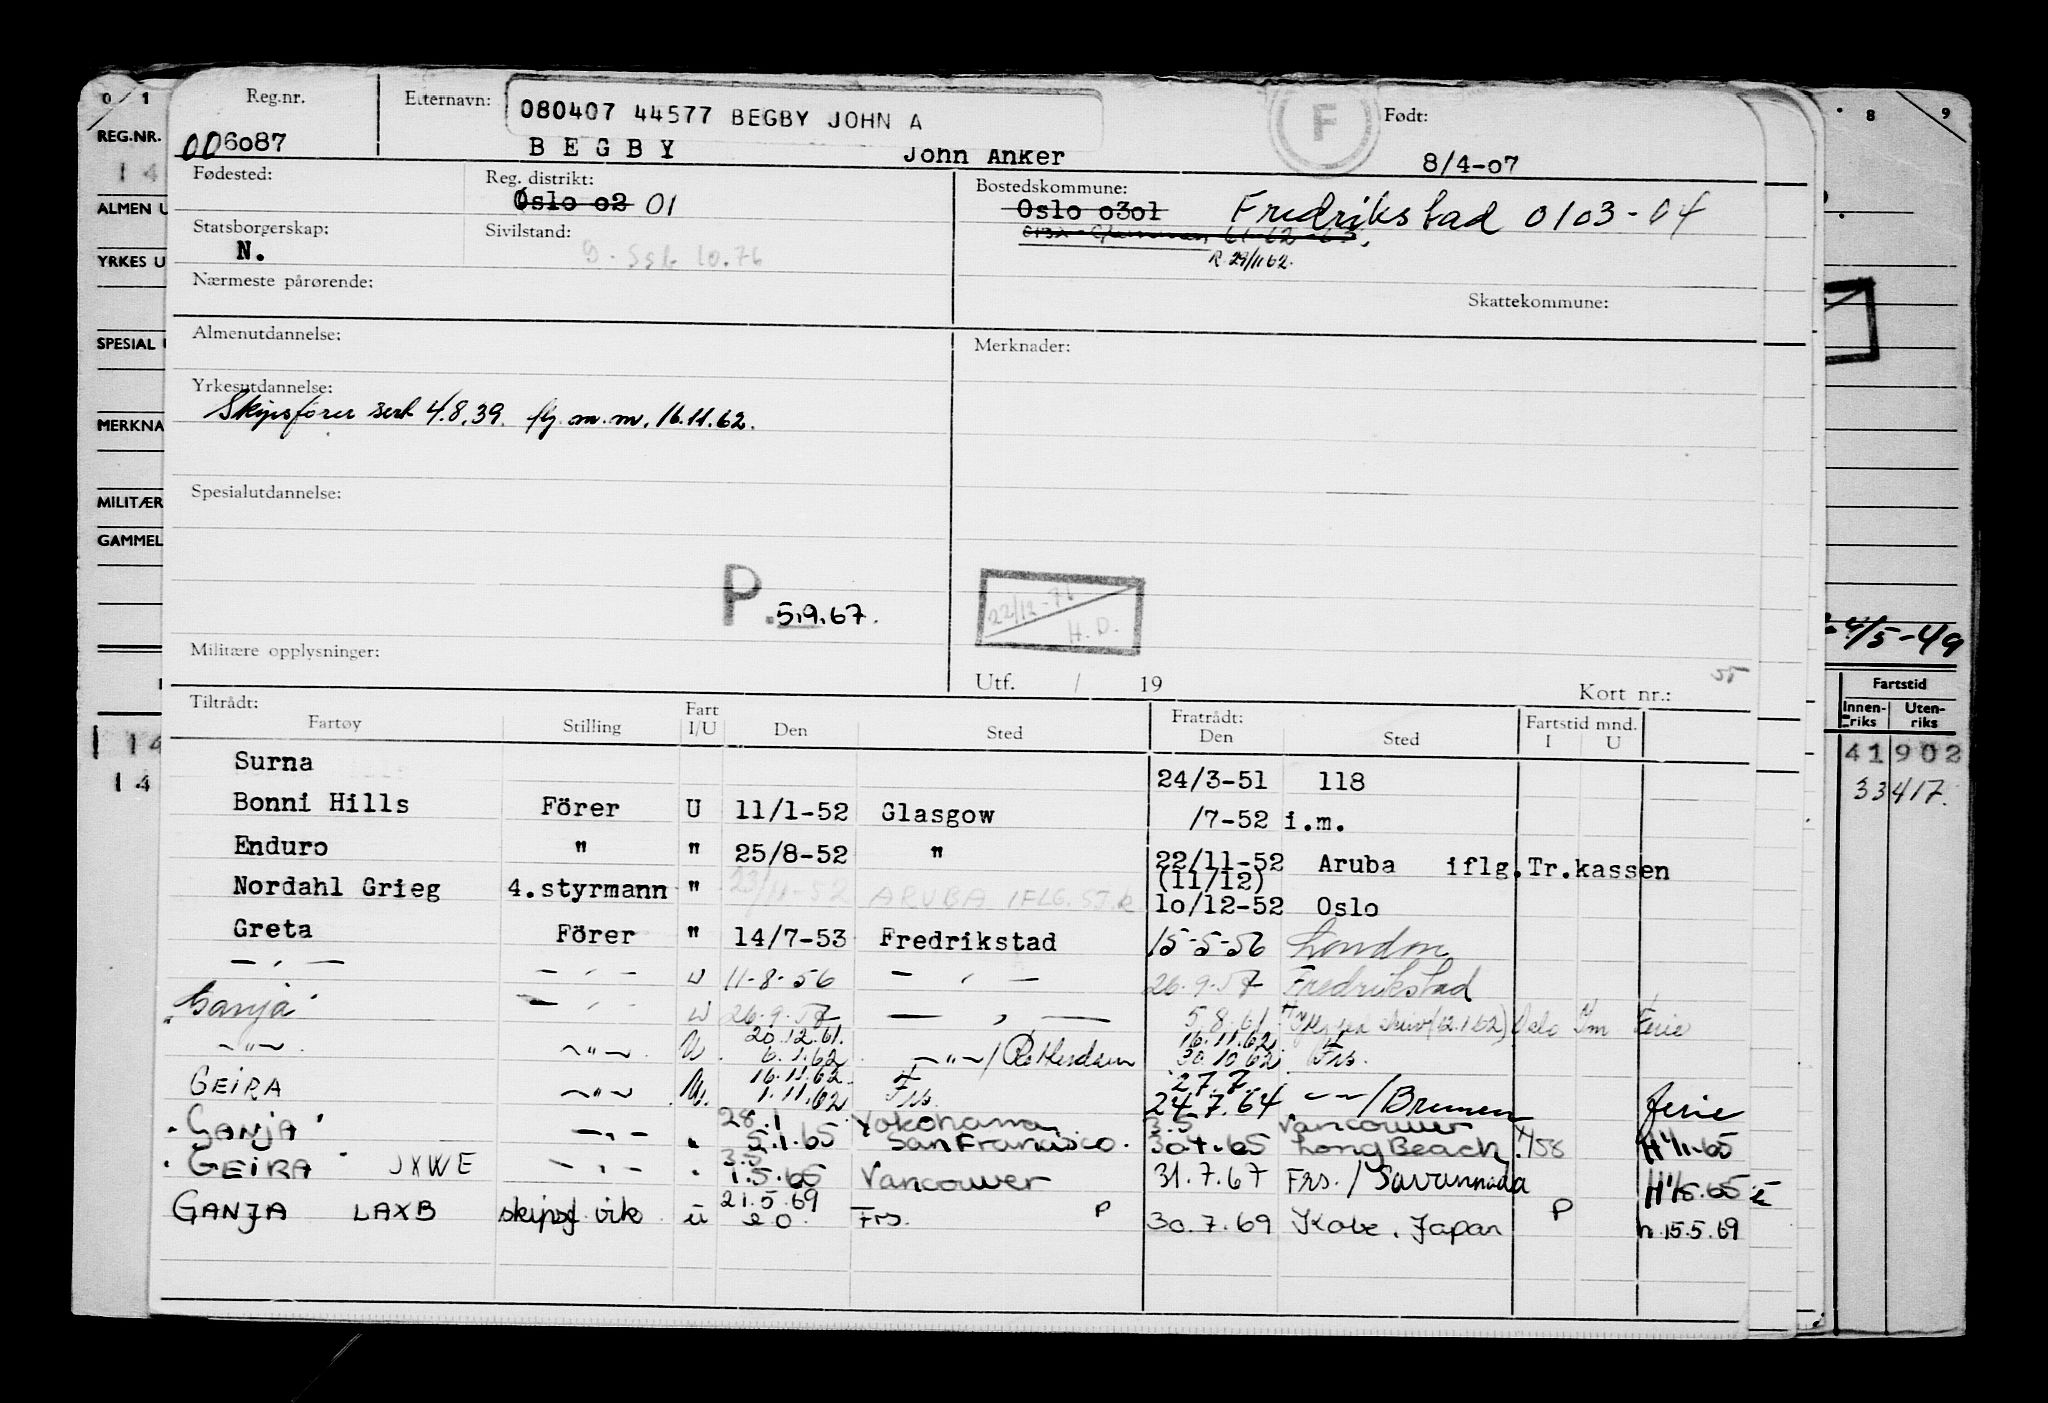 0 / 1
8 9
REG.NR.
14
ALMEN U
YRKES U
SPESIAL
MERKNA
MILITÆR
GAMMEL
Reg.nr.
006087
Etternavn:
080407 44577 BEGBY JOHN A
BEGBY John Anker
F
Født:
8/4-07
Fødested:
Reg. distrikt:
Oslo 02 01
Bostedskommune:
Oslo 0301 Fredrikstad 0103-04
61-62-63.
R. 29/11 62.
Statsborgerskap:
N.
Sivilstand:
10.76
Nærmeste pårørende:
Skattekommune:
Almenutdannelse:
Merknader:
Yrkesutdannelse:
Skipsfører sert 4.8.39. flg. m.m. 16.11.62.
Spesialutdannelse:
P. 5.9.67.
22/12-71
H.D.
4/5-49
Militære opplysninger:
Utf. / 19
Kort nr.:
55
Tiltrådt:
Fartøy Stilling Fart I/U Den Sted Fratrådt: Den Sted Fartstid mnd. I U
Fartstid
Innenriks Utenriks
41902
33417.
14
14
Surna 24/3-51 118
Bonni Hills Förer U 11/1-52 Glasgow /7-52 i.m.
Enduro " " 25/8-52 " 22/11-52 Aruba iflg.Tr.kassen
(11/12)
Nordahl Grieg 4.styrmann " 23/11-52 ARUBA IFLG. SJ.k 10/12-52 Oslo
Greta Förer " 14/7-53 Fredrikstad 15-5-56 London
— " — — " — U 11-8-56 — " — 26.9.57 Fredrikstad
"Ganja" — " — U 26.9.57 — " — 5.8.61 (12.1.62) Oslo Im Ferie
20.12.61. 16.11.62
— " — — " — U. 6.1.62 — " — / Rotterdam 30.10.62 Frs.
16.11.62 27.7.
GEIRA — " — U. 1.11.62 Frs. 24.7.64 — " — / Bremen ferie
28.1 Yokohama 3.5 Vancouver
"GANJA" — " — " 5.1.65 San Francisco. 30.4.65 Long Beach 4/58 H 4/1-65
3.5
"GEIRA" JXWE — " — " 1.5.65 Vancouver 31.7.67 Frs. / Savannada H 1/5.65
21.5.69
GANJA LAXB skipsf vik ü 20 Frs. P 30.7.69 Kobe, Japan P h.15.5.69